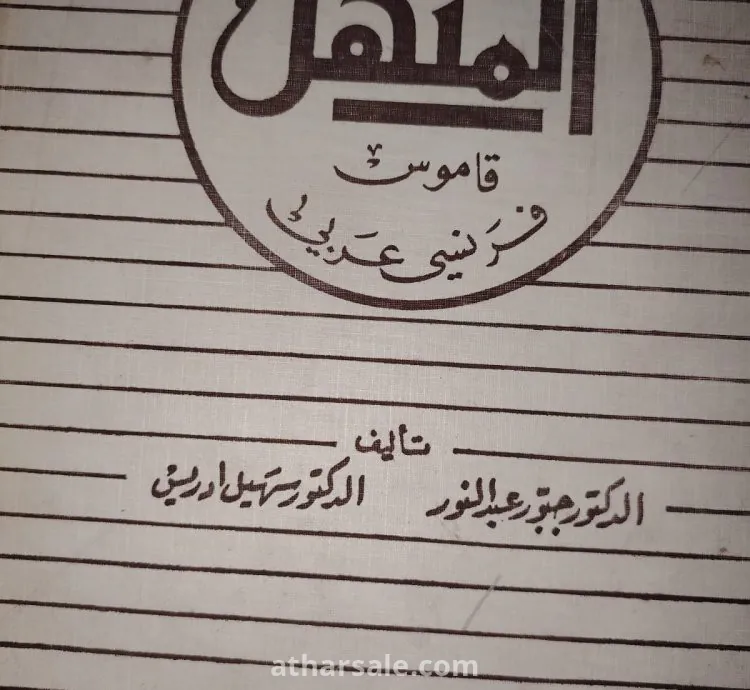 المنهل
قاموس
فرنسي عربي
تأليف
الدكتور جبور عبد النور الدكتور سهيل ادريس
atharsale.com